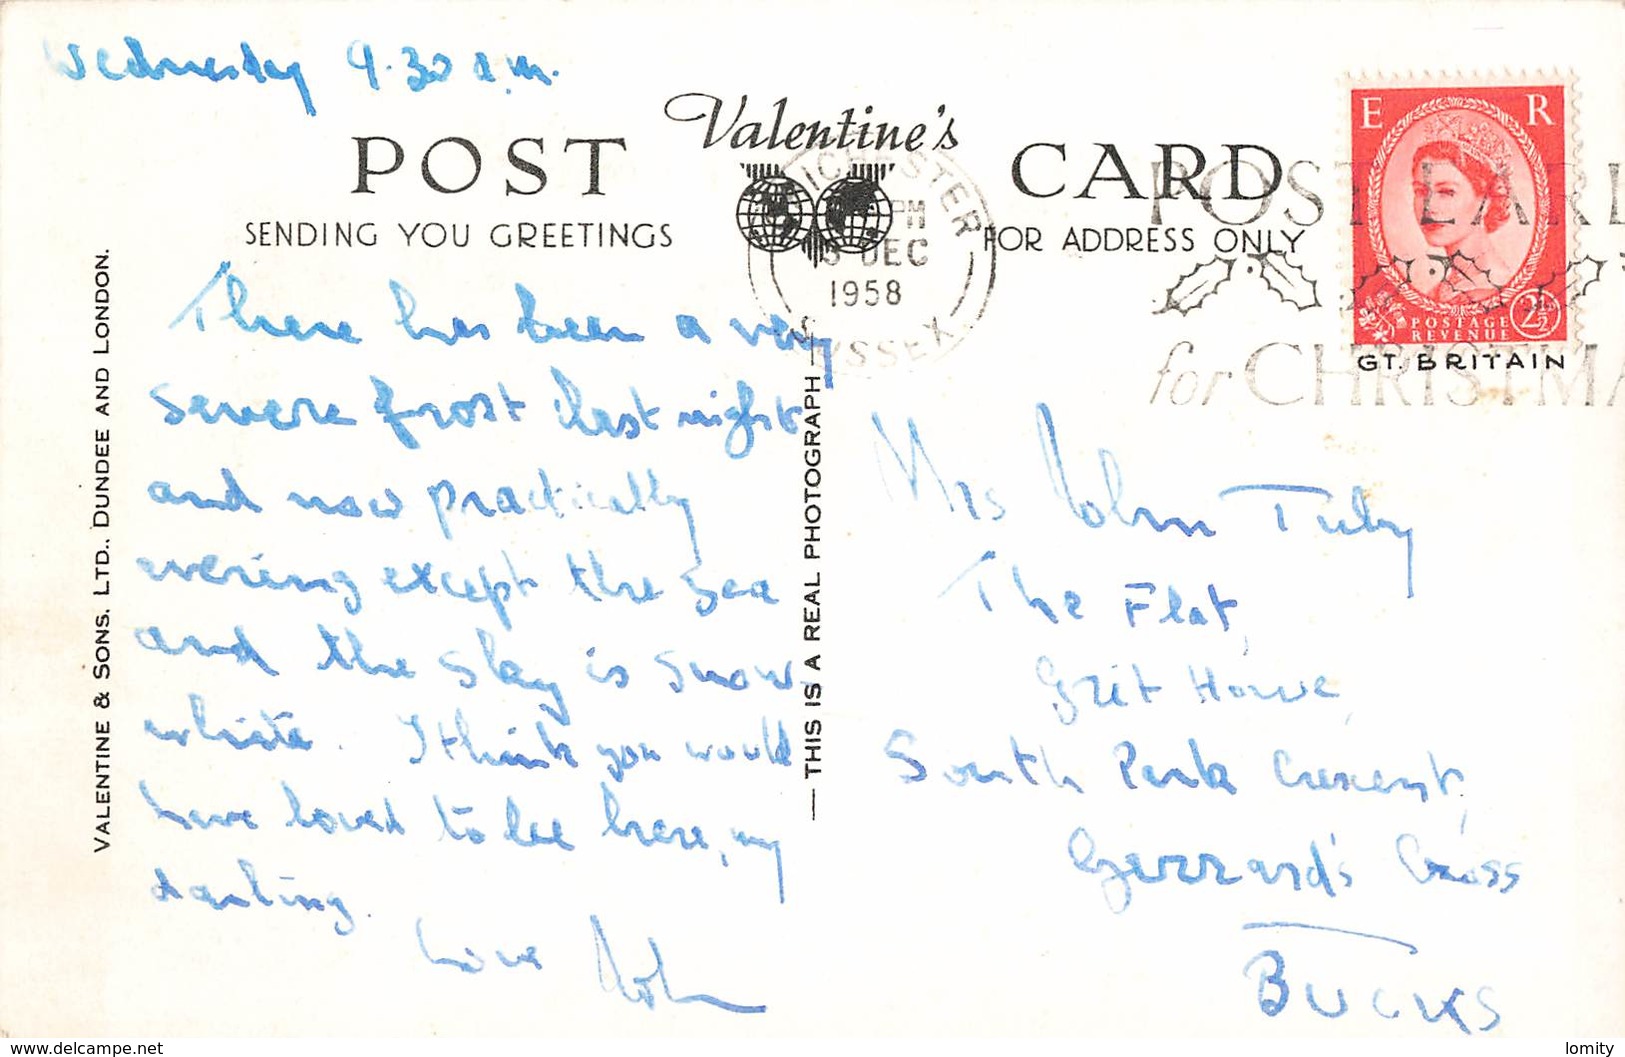 Wednesday 9.30 a.m.
Valentine's
POST CARD
SENDING YOU GREETINGS
FOR ADDRESS ONLY
CHICHESTER
PM
DEC
1958
SUSSEX
POST EARL
for CHRISTMA
E R
POSTAGE
REVENUE
2½
GT. BRITAIN
There has been a very
severe frost last night
and now practically
evering except the sea
and the sky is snow
white. I think you would
have loved to be here, my
darling.
Love John
VALENTINE & SONS. LTD., DUNDEE AND LONDON.
— THIS IS A REAL PHOTOGRAPH —
Mrs John Tuby
The Flat,
House,
South Park Crescent,
Gerrard's Cross
BUCKS
www.delcampe.net
lomity